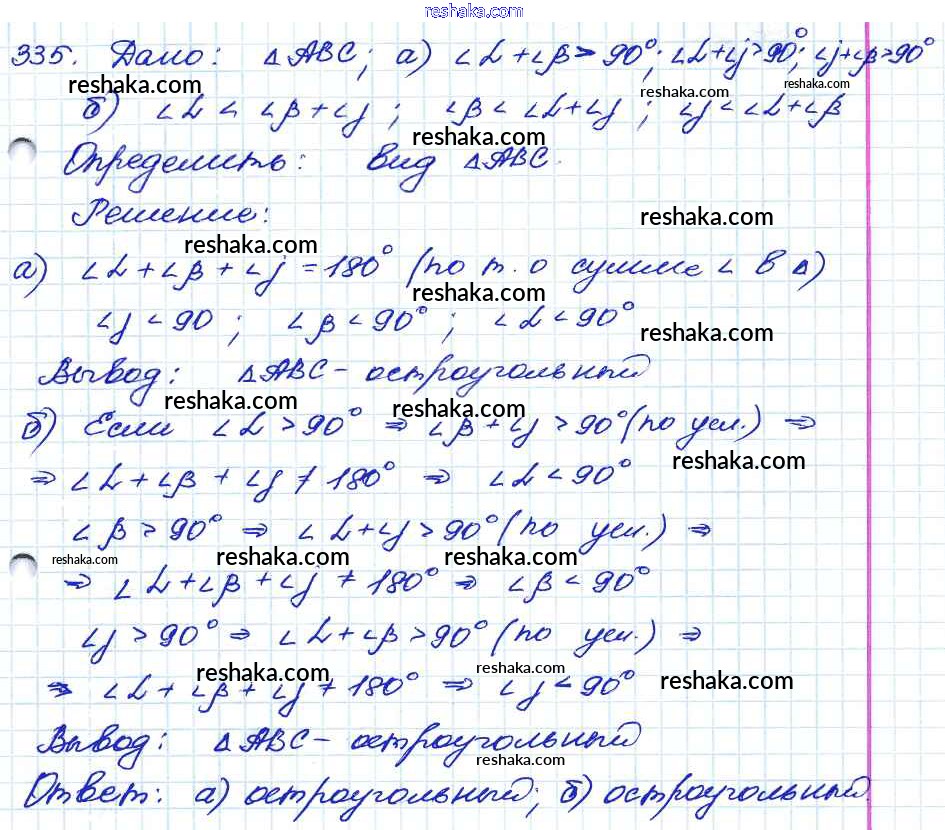 reshaka.com
335. Дано: △ABC; а) ∠L+∠β>90°; ∠L+∠j>90°; ∠j+∠β>90°
reshaka.com reshaka.com reshaka.com
б) ∠L < ∠β+∠j; ∠β<∠L+∠j; ∠j<∠L+∠β
reshaka.com
Определить: вид △ABC.
Решение:
reshaka.com reshaka.com
а) ∠L+∠β+∠j=180° (по т. о сумме ∠ в △)
reshaka.com
∠j<90; ∠β<90°; ∠L<90°
reshaka.com
Вывод: △ABC - остроугольный
reshaka.com reshaka.com
б) Если ∠L>90° ⇒ ∠β+∠j>90° (по усл.) ⇒
reshaka.com
⇒ ∠L+∠β+∠j≠180° ⇒ ∠L<90°
∠β>90° ⇒ ∠L+∠j>90° (по усл.) ⇒
reshaka.com reshaka.com reshaka.com
⇒ ∠L+∠β+∠j≠180° ⇒ ∠β<90°
∠j>90° ⇒ ∠L+∠β>90° (по усл.) ⇒
reshaka.com reshaka.com reshaka.com
⇒ ∠L+∠β+∠j≠180° ⇒ ∠j<90°
Вывод: △ABC - остроугольный
reshaka.com
Ответ: а) остроугольный; б) остроугольный.